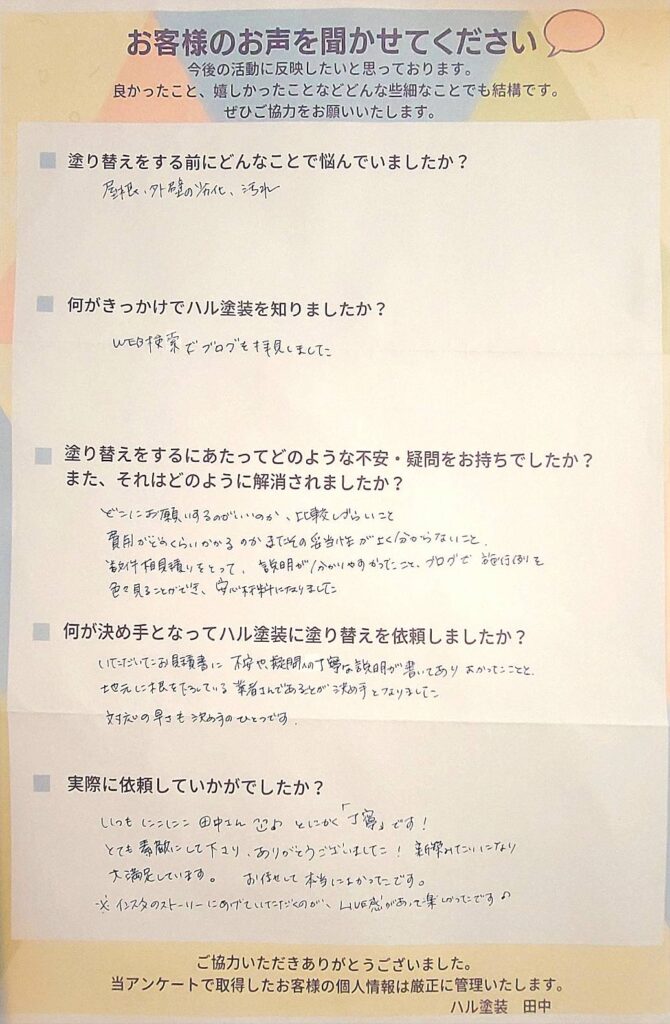 お客様のお声を聞かせてください
今後の活動に反映したいと思っております。
良かったこと、嬉しかったことなどどんな些細なことでも結構です。
ぜひご協力をお願いいたします。
塗り替えをする前にどんなことで悩んでいましたか？
屋根、外壁の劣化、汚れ
何がきっかけでハル塗装を知りましたか？
WEB検索でブログを拝見しました
塗り替えをするにあたってどのような不安・疑問をお持ちでしたか？
また、それはどのように解消されましたか？
どこにお願いするのがいいのか、比較しづらいこと
費用がどのくらいかかるのかまたその妥当性がよく分からないこと。
数件相見積りをとって、説明が分かりやすかったこと、ブログで施行例を
色々見ることができ、安心材料になりました
何が決め手となってハル塗装に塗り替えを依頼しましたか？
いただいたお見積書に不安や疑問への丁寧な説明が書いてありよかったことと、
地元に根を下ろしている業者さんであることが決め手となりました
対応の早さも決め手のひとつです.
実際に依頼していかがでしたか？
いつもにこにこ田中さん♪とにかく「丁寧」です！
とても素敵にして下さり、ありがとうございました！新築みたいになり
大満足しています。 お任せして本当によかったです。
※インスタのストーリーにあげていただくのが、LIVE感があって楽しかったです♪
ご協力いただきありがとうございました。
当アンケートで取得したお客様の個人情報は厳正に管理いたします。
ハル塗装 田中